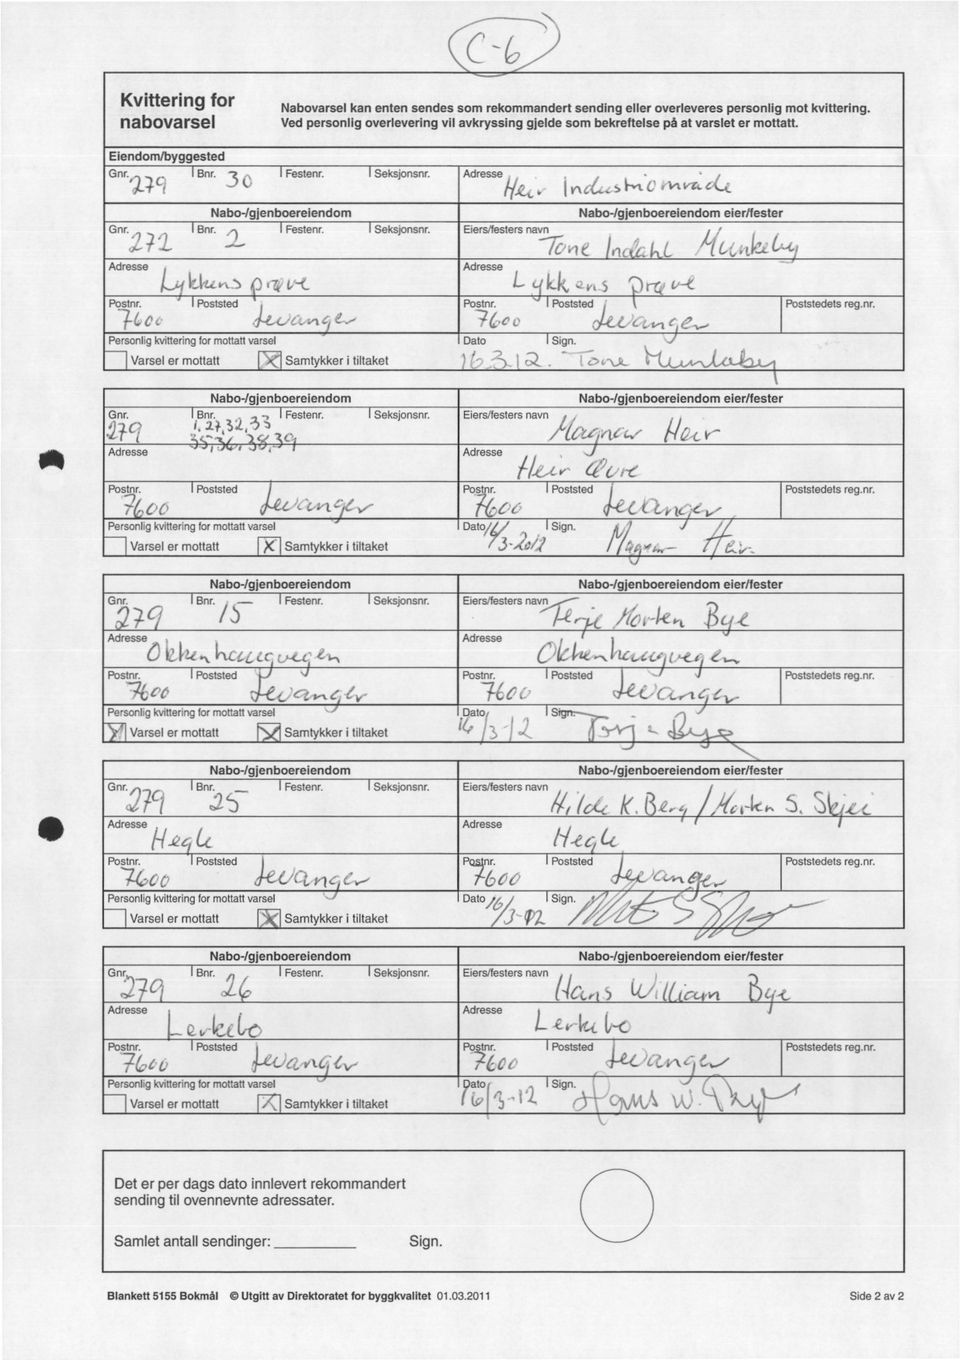 C-6
Kvittering for nabovarsel
Nabovarsel kan enten sendes som rekommandert sending eller overleveres personlig mot kvittering.
Ved personlig overlevering vil avkryssing gjelde som bekreftelse på at varslet er mottatt.
Eiendom/byggested
Gnr. 279 Bnr. 30 Festenr. Seksjonsnr. Adresse Heir Industriområde
Nabo-/gjenboereiendom Nabo-/gjenboereiendom eier/fester
Gnr. 272 Bnr. 2 Festenr. Seksjonsnr. Eiers/festers navn Tone Indahl Munkeby
Adresse Lykkens prøve Adresse Lykkens prøve
Postnr. 7600 Poststed Levanger Postnr. 7600 Poststed Levanger Poststedets reg.nr.
Personlig kvittering for mottatt varsel Dato 16.3.12. Sign. Tone Munkeby
Varsel er mottatt X Samtykker i tiltaket
Nabo-/gjenboereiendom Nabo-/gjenboereiendom eier/fester
Gnr. 279 Bnr. 1, 27, 32, 33 Festenr. Seksjonsnr. Eiers/festers navn Magnar Heir
35, 36, 38, 39
Adresse Adresse Heir Øvre
Postnr. 7600 Poststed Levanger Postnr. 7600 Poststed Levanger Poststedets reg.nr.
Personlig kvittering for mottatt varsel Dato 16/3-2012 Sign. Magnar Heir
Varsel er mottatt X Samtykker i tiltaket
Nabo-/gjenboereiendom Nabo-/gjenboereiendom eier/fester
Gnr. 279 Bnr. 15 Festenr. Seksjonsnr. Eiers/festers navn Terje Morten Bye
Adresse Okkenhaugvegen Adresse Okkenhaugvegen
Postnr. 7600 Poststed Levanger Postnr. 7600 Poststed Levanger Poststedets reg.nr.
Personlig kvittering for mottatt varsel Dato 16/3-12 Sign. Terje Bye
X Varsel er mottatt X Samtykker i tiltaket
Nabo-/gjenboereiendom Nabo-/gjenboereiendom eier/fester
Gnr. 279 Bnr. 25 Festenr. Seksjonsnr. Eiers/festers navn Hilde K. Berg / Morten S. Skjei
Adresse Hegle Adresse Hegle
Postnr. 7600 Poststed Levanger Postnr. 7600 Poststed Levanger Poststedets reg.nr.
Personlig kvittering for mottatt varsel Dato 16/3-12 Sign.
Varsel er mottatt X Samtykker i tiltaket
Nabo-/gjenboereiendom Nabo-/gjenboereiendom eier/fester
Gnr. 279 Bnr. 26 Festenr. Seksjonsnr. Eiers/festers navn Hans William Bye
Adresse Lerkebo Adresse Lerkebo
Postnr. 7600 Poststed Levanger Postnr. 7600 Poststed Levanger Poststedets reg.nr.
Personlig kvittering for mottatt varsel Dato 16/3-12 Sign. Hans W. Bye
Varsel er mottatt X Samtykker i tiltaket
Det er per dags dato innlevert rekommandert
sending til ovennevnte adressater.
Samlet antall sendinger: Sign.
Blankett 5155 Bokmål © Utgitt av Direktoratet for byggkvalitet 01.03.2011 Side 2 av 2